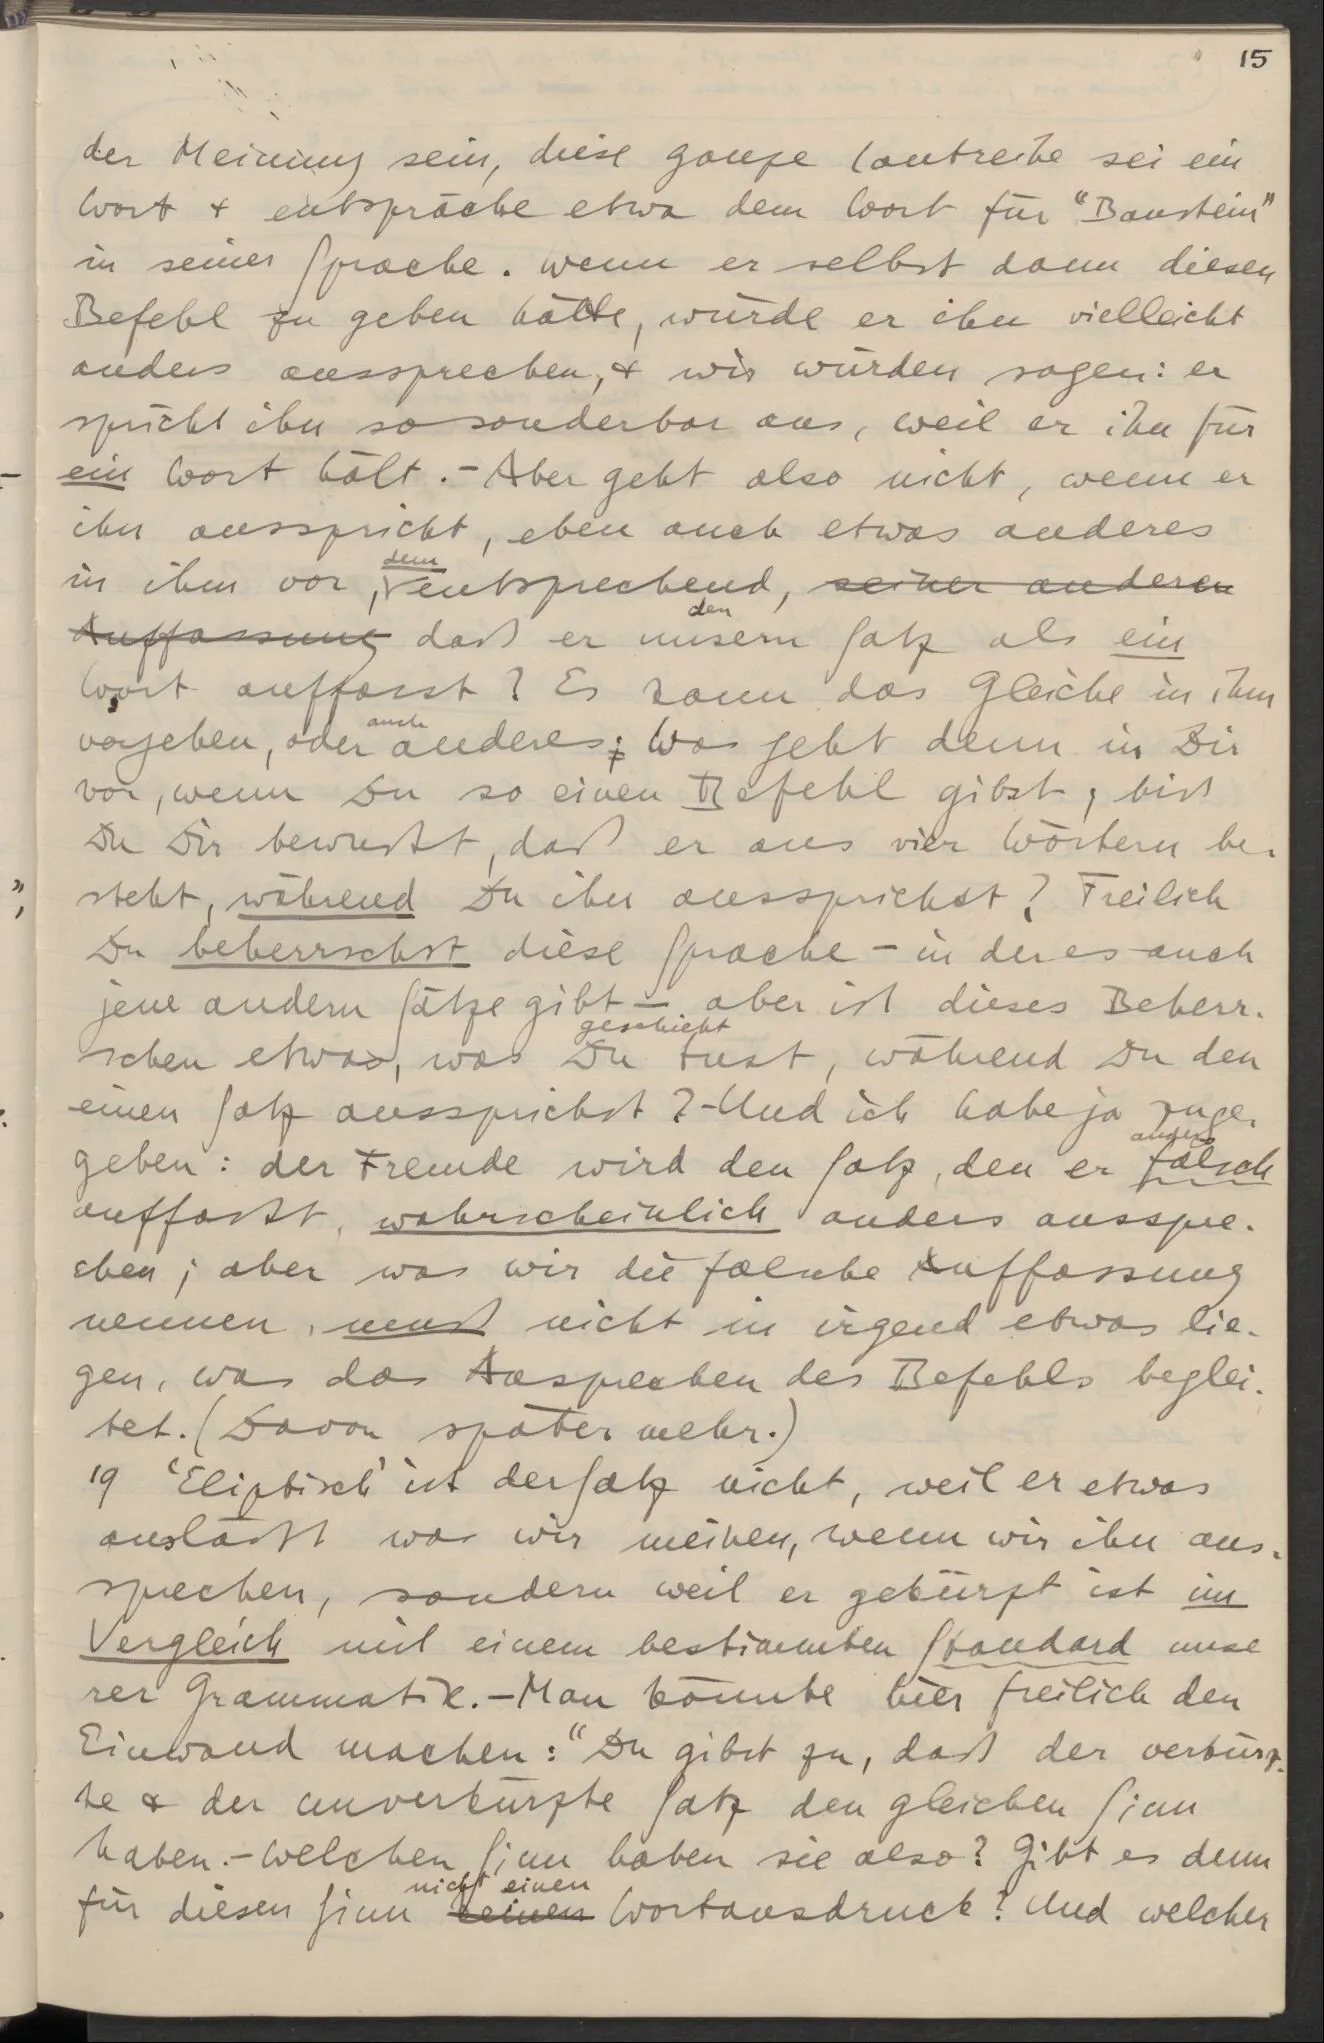 15
der Meinung sein, diese ganze Lautreihe sei ein
Wort & entspräche etwa dem Wort für “Baustein”
in seiner Sprache. Wenn er selbst dann diesen
Befehl zu geben hätte, würde er ihn vielleicht
anders aussprechen, & wir würden sagen: er
spricht ihn so sonderbar aus, weil er ihn für
ein Wort hält. – Aber geht also nicht, wenn er
ihn ausspricht, eben auch etwas anderes
dem
in ihm vor, entsprechend, seiner anderen
den
Auffassung daß er unsern Satz als ein
Wort auffasst? Es kann das Gleiche in ihm
auch
vorgehen, oder anderes; Was geht denn in Dir
vor, wenn Du so einen Befehl gibst; bist
Du Dir bewußt, daß er aus vier Wörtern be-
steht, während Du ihn aussprichst? Freilich
Du beherrschst diese Sprache – in der es auch
jene andern Sätze gibt – aber ist dieses Beherr-
geschieht
schen etwas, was Du tust, während Du den
einen Satz aussprichst? – Und ich habe ja zuge-
anders
geben: der Fremde wird den Satz, den er falsch
auffaßt, wahrscheinlich andersausspre-
chen; aber was wir die falsche Auffassung
nennen, muß nicht in irgend etwas lie-
gen, was das Aussprechen des Befehls beglei-
tet. (Davon später mehr.)
19 ‘Eliptisch’ ist der Satz nicht, weil er etwas
ausläßt was wir meinen, wenn wir ihn aus-
sprechen, sondern weil er gekürzt ist im
Vergleich mit einem bestimmten Standard unse
rer Grammatik. – Man könnte hier freilich den
Einwand machen: “Du gibst zu, daß der verkürz-
te & der unverkürzte Satz den gleichen Sinn
haben. – Welchen Sinn haben sie also? Gibt es denn
nicht einen
für diesen Sinn keinen Wortausdruck? Und welcher